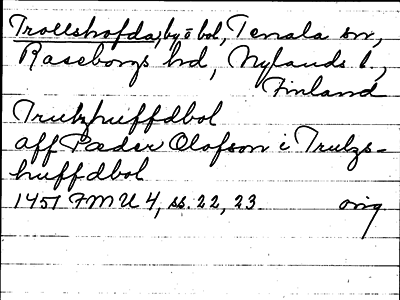 Trollshofda, by o bol, Tenala sn,
Raseborgs hd, Nylands l,
Finland
Trulzhuffdbol
aff Pæder Olofson i Trulzs-
huffdbol
1451 FMU 4, ss. 22, 23 orig